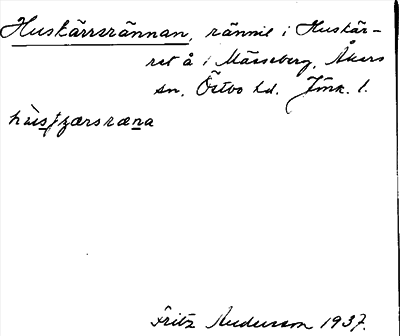 Huskärrsrännan, rännil i Huskär-
ret å i Mässeberg, Åkers
sn, Östbo hd. Jönk. l.
hùsʃzærsræna
Fritz Andersson 1937.